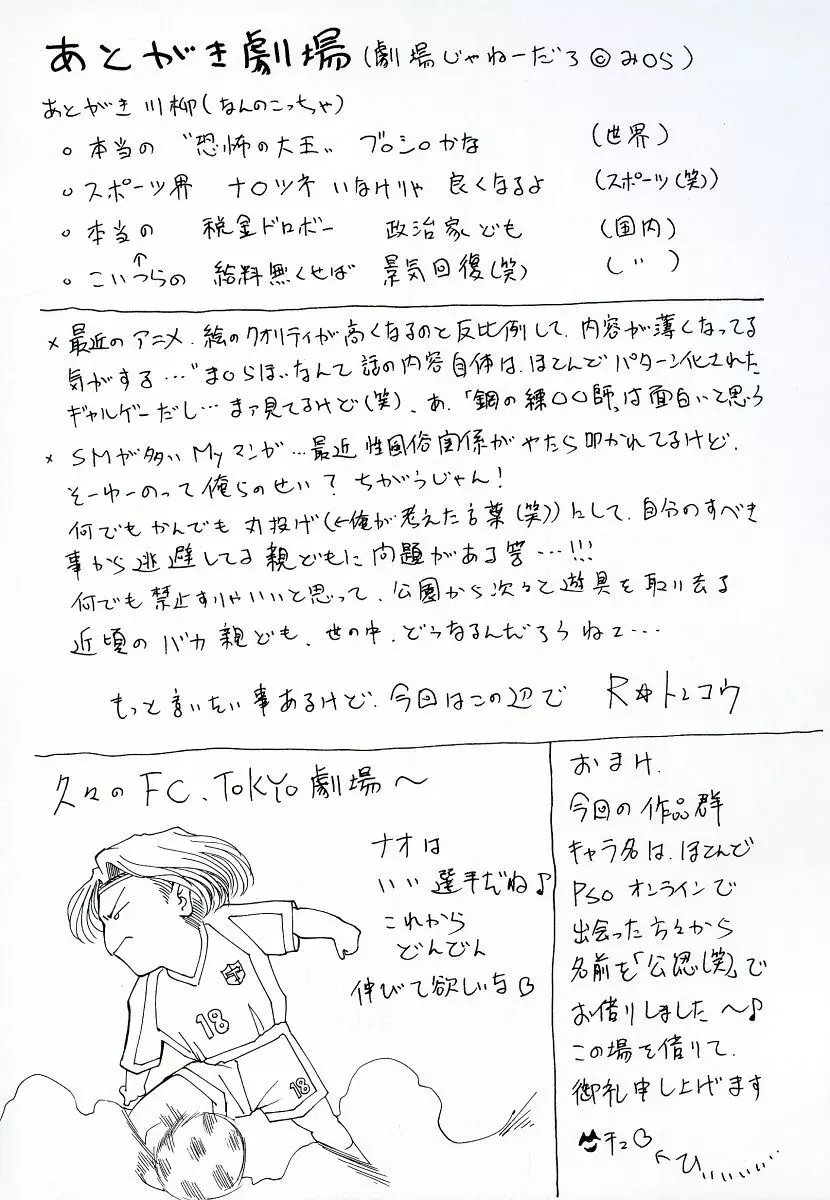 あとがき劇場(劇場じゃねーだろ©み○ら)
あとがき川柳(なんのこっちゃ)
○本当の〝恐怖の大王〟ブ○シ○かな (世界)
○スポーツ界 ナ○ツネいなけりゃ 良くなるよ (スポーツ(笑))
○本当の 税金ドロボー 政治家ども (国内)
↑
○こいつらの 給料無くせば 景気回復(笑) (〃)
×最近のアニメ、絵のクオリティが高くなるのと反比例して、内容が薄くなってる
気がする…〝ま○らほ〟なんて話の内容自体は、ほとんでパターン化された
ギャルゲーだし…まァ見てるけど(笑)、あ、「鋼の練○○師」は面白いと思う
×SMが多いMyマンガ…最近性風俗関係がやたら叩かれてるけど、
そーゆーのって俺らのせい?ちがうじゃん!
何でもかんでも丸投げ(←俺が考えた言葉(笑))にして、自分のすべき
事から逃避してる親どもに問題がある筈…!!!
何でも禁止すりゃいいと思って、公園から次々と遊具を取り去る
近頃のバカ親ども、世の中、どうなるんだろうねェ…
もっと言いたい事あるけど、今回はこの辺で R☆トレコウ
久々のFC、TOKYO劇場〜
ナオは
いい選手だね♪
これから
どんどん
伸びて欲しいな
18
18
おまけ、
今回の作品群
キャラ名は、ほとんで
PSOオンラインで
出会った方々から
名前を「公認(笑)」で
お借りしました〜♪
この場を借りて、
御礼申し上げます